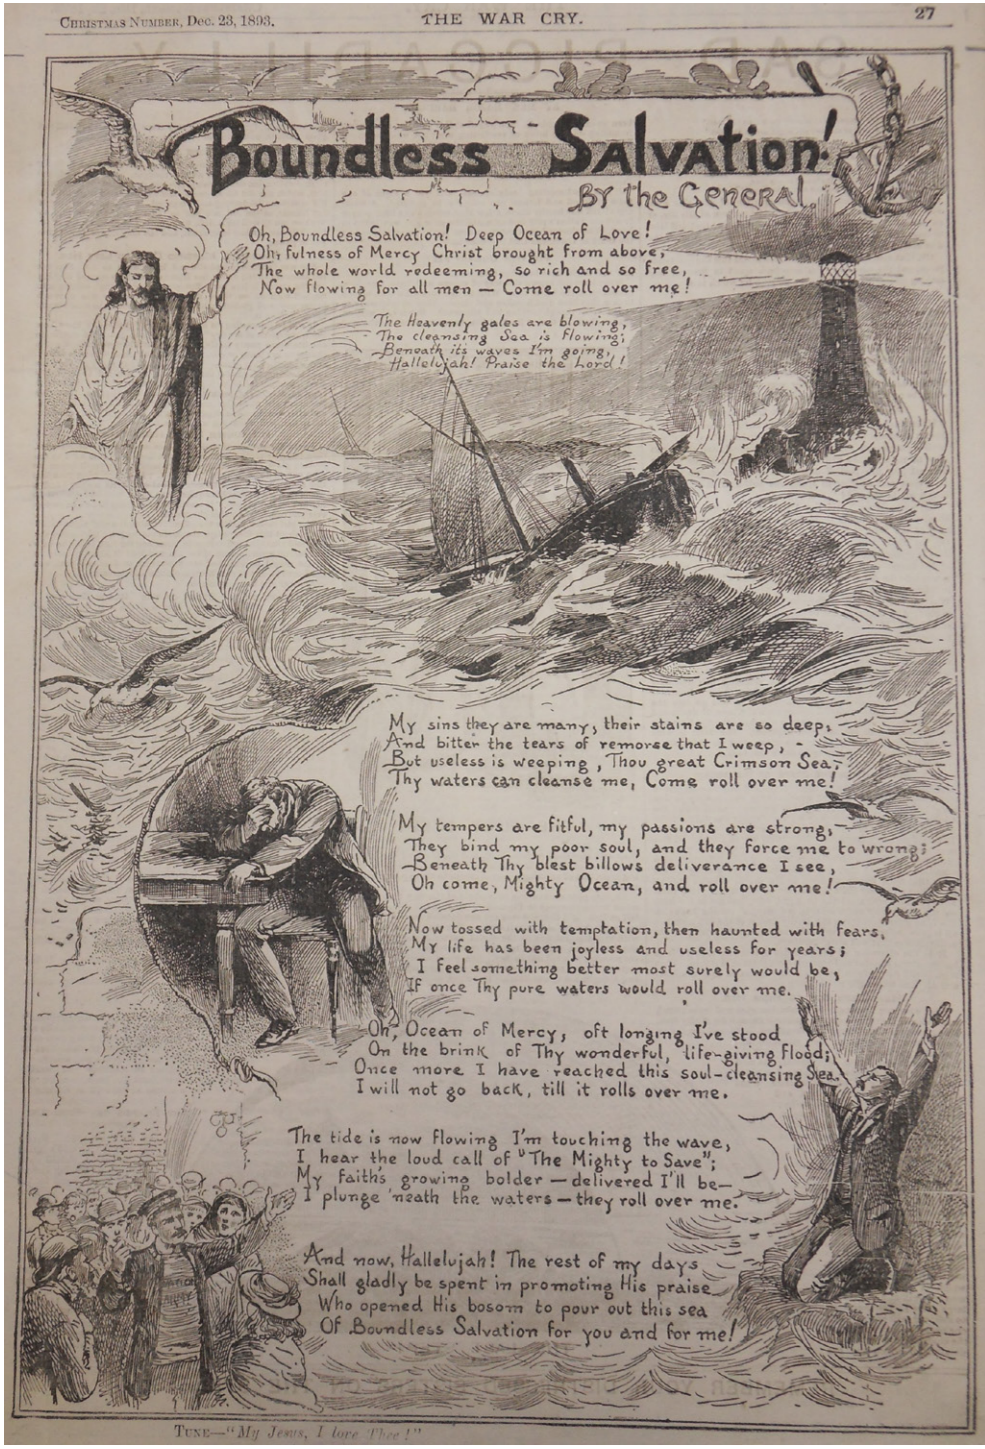 CHRISTMAS NUMBER, DEC. 23, 1893.
THE WAR CRY.
27
Boundless Salvation!
BY the GENERAL.
Oh, Boundless Salvation! Deep Ocean of Love!
Oh, fulness of Mercy Christ brought from above,
The whole world redeeming, so rich and so free,
Now flowing for all men — Come roll over me!
The Heavenly gales are blowing,
The cleansing Sea is flowing;
Beneath its waves I'm going,
Hallelujah! Praise the Lord!
My sins they are many, their stains are so deep,
And bitter the tears of remorse that I weep,
But useless is weeping, Thou great Crimson Sea,
Thy waters can cleanse me, Come roll over me!
My tempers are fitful, my passions are strong,
They bind my poor soul, and they force me to wrong;
Beneath Thy blest billows deliverance I see,
Oh come, Mighty Ocean, and roll over me!
Now tossed with temptation, then haunted with fears,
My life has been joyless and useless for years;
I feel something better most surely would be,
If once Thy pure waters would roll over me.
Oh, Ocean of Mercy, oft longing I've stood
On the brink of Thy wonderful, life-giving flood;
Once more I have reached this soul-cleansing Sea.
I will not go back, till it rolls over me.
The tide is now flowing I'm touching the wave,
I hear the loud call of "The Mighty to Save";
My faith's growing bolder — delivered I'll be—
I plunge 'neath the waters — they roll over me.
And now, Hallelujah! The rest of my days
Shall gladly be spent in promoting His praise
Who opened His bosom to pour out this sea
Of Boundless Salvation for you and for me!
TUNE—"My Jesus, I love Thee!"